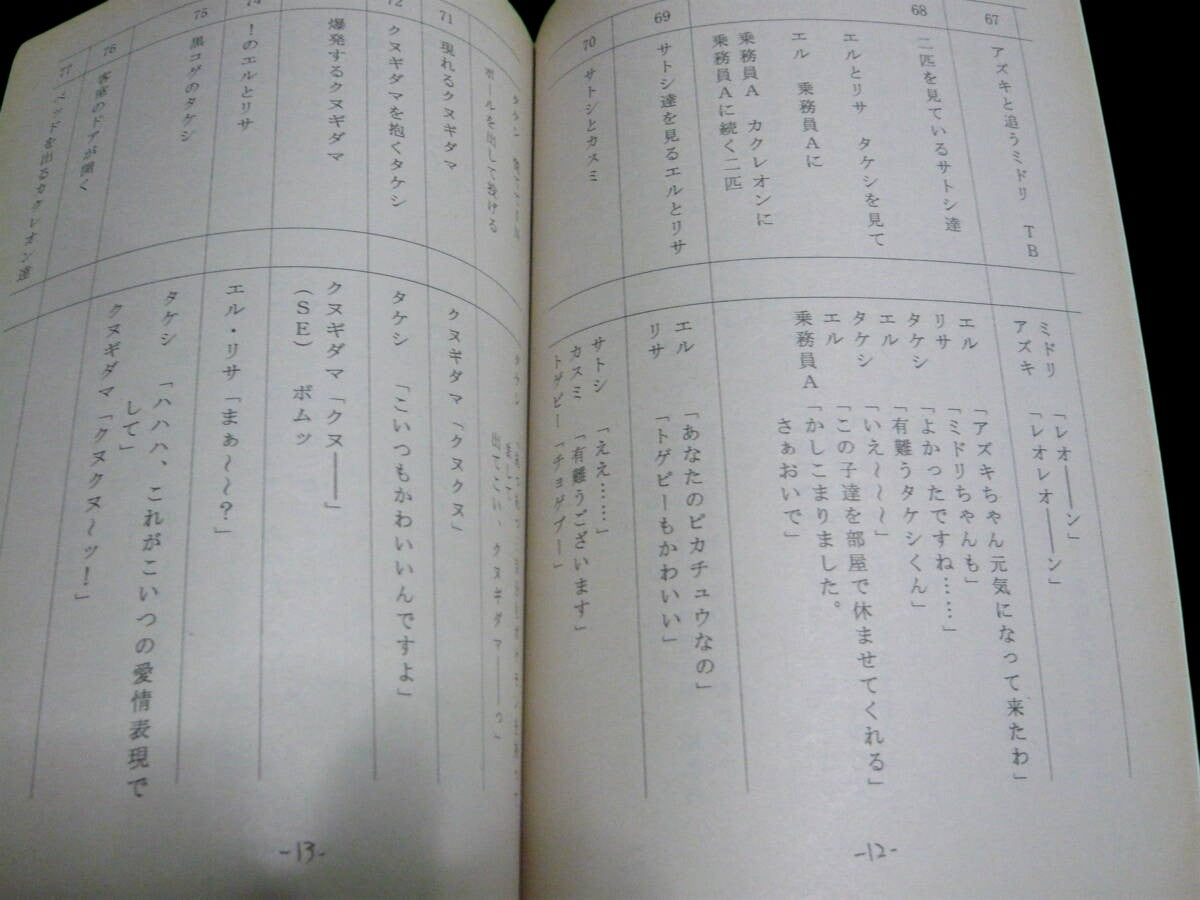 67
アズキと追うミドリ　ＴＢ
ミドリ「レオ――ン」
アズキ「レオレオ――ン」
68
二匹を見ているサトシ達
エルとリサ　タケシを見て
エル　乗務員Ａに
乗務員Ａ　カクレオンに
乗務員Ａに続く二匹
エル「アズキちゃん元気になって来たわ」
リサ「ミドリちゃんも」
タケシ「よかったですね……」
エル「有難うタケシくん」
タケシ「いえ～～～」
エル「この子達を部屋で休ませてくれる」
乗務員Ａ「かしこまりました。
さぁおいで」
69
サトシ達を見るエルとリサ
エル「あなたのピカチュウなの」
リサ「トゲピーもかわいい」
70
サトシとカスミ
サトシ「ええ……」
カスミ「有難うございます」
トゲピー「チョゲプー」
-12-
ボールを出して投げる
出てこい、クヌギダマ――っ」
71
現れるクヌギダマ
クヌギダマ「クヌクヌ」
72
クヌギダマを抱くタケシ
タケシ「こいつもかわいいんですよ」
爆発するクヌギダマ
クヌギダマ「クヌ――」
（ＳＥ）　ボムッ
74
！のエルとリサ
エル・リサ「まぁ～～～？」
75
黒コゲのタケシ
タケシ「ハハハ、これがこいつの愛情表現で
して」
クヌギダマ「クヌクヌ～ッ！」
76
客室のドアが開く
77
ベッドを出るカクレオン達
-13-